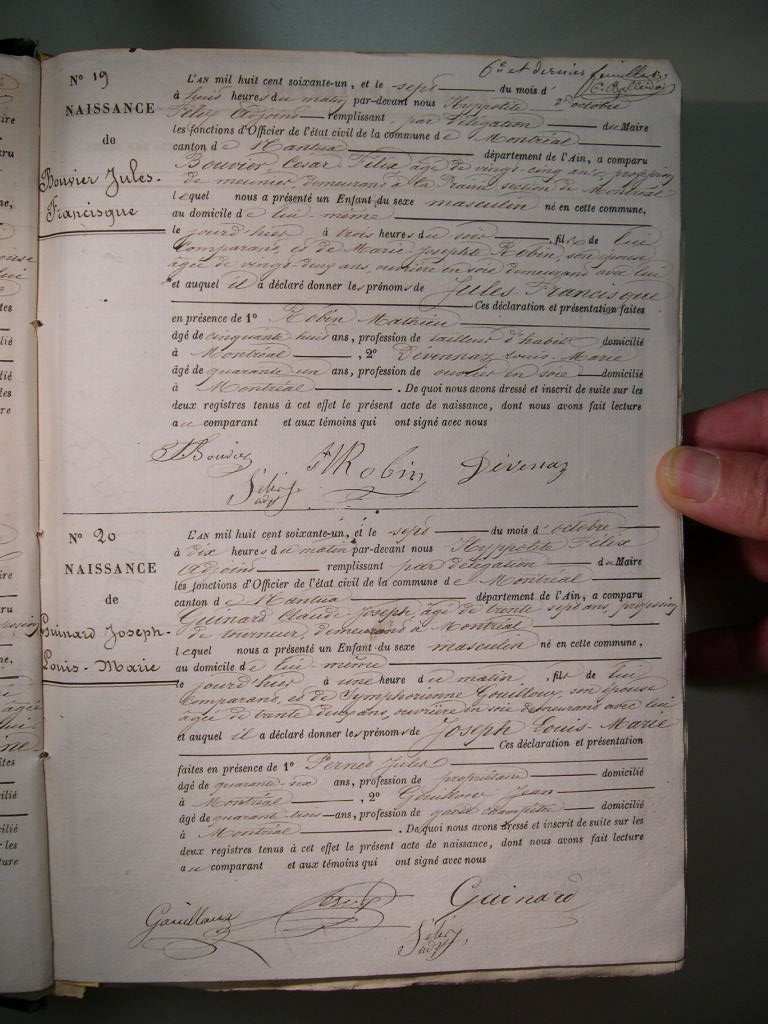 6e et dernier feuillet
N° 19
NAISSANCE
de
Bouvier Jules-
Francisque
L'AN mil huit cent soixante-un, et le sept du mois d'octobre
à huit heures du matin par-devant nous Hyppolite
Félix remplissant par délégation du Maire
les fonctions d'Officier de l'état civil de la commune de Montréal
canton de Nantua département de l'Ain, a comparu
Bouvier César Félix âgé de vingt-cinq ans, profession
de meunier, demeurant à la Prairie section de Montréal
lequel nous a présenté un Enfant du sexe masculin né en cette commune,
au domicile de lui-même
le jourd'hier à trois heures du soir, fils de lui
comparant, et de Marie Josephte Robin, son épouse
âgée de vingt-deux ans, ouvrière en soie demeurant avec lui
et auquel il a déclaré donner les prénoms de Jules Francisque
Ces déclaration et présentation faites
en présence de 1° Robin Mathieu
âgé de cinquante huit ans, profession de tailleur d'habits domicilié
à Montréal, 2° Devennaz Louis-Marie
âgé de quarante un ans, profession de ouvrier en soie domicilié
à Montréal. De quoi nous avons dressé et inscrit de suite sur les
deux registres tenus à cet effet le présent acte de naissance, dont nous avons fait lecture
au comparant et aux témoins qui ont signé avec nous
Bouvier Robin Devenaz
Félix
N° 20
NAISSANCE
de
Guinard Joseph-
Louis-Marie
L'AN mil huit cent soixante-un, et le sept du mois d'octobre
à dix heures du matin par-devant nous Hyppolite Félix
adjoint remplissant par délégation du Maire
les fonctions d'Officier de l'état civil de la commune de Montréal
canton de Nantua département de l'Ain, a comparu
Guinard Claude Joseph, âgé de trente sept ans, profession
de tourneur, demeurant à Montréal
lequel nous a présenté un Enfant du sexe masculin né en cette commune,
au domicile de lui-même
le jourd'hier à une heure du matin, fils de lui
comparant, et de Symphorienne Gouilloux, son épouse
âgée de trente deux ans, ouvrière en soie demeurant avec lui
et auquel il a déclaré donner les prénoms de Joseph Louis-Marie
Ces déclaration et présentation
faites en présence de 1° Jules
âgé de quarante six ans, profession de propriétaire domicilié
à Montréal, 2° Gouilloux Jean
âgé de quarante ans, profession de garde champêtre domicilié
à Montréal. De quoi nous avons dressé et inscrit de suite sur les
deux registres tenus à cet effet le présent acte de naissance, dont nous avons fait lecture
au comparant et aux témoins qui ont signé avec nous
Gouilloux Guinard
Félix